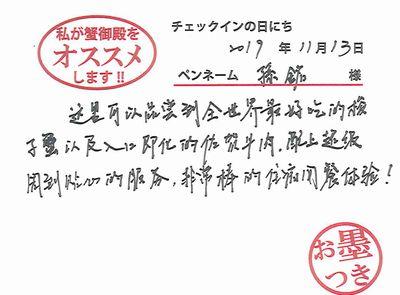 私が蟹御殿を
オススメ
します!!
チェックインの日にち
2019 年 11月 13日
ペンネーム 孫 様
这是可以品尝到全世界最好吃的梭
子蟹以及入口即化的佐贺牛肉,配上超级
周到贴心的服务,非常棒的住宿用餐体验!
お墨
つき